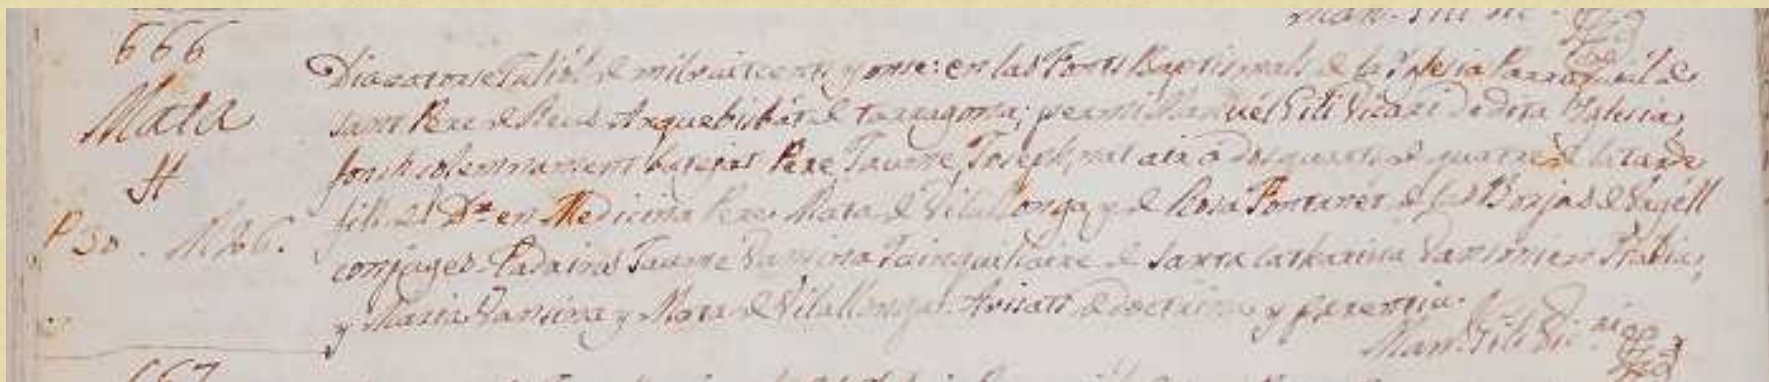 666
Mata
Dia catorse Juliol de mil vuit cents y onse: en las Fonts Baptismals de la Iglesia Parroquial de
sant Pere de Reus Arquebisbat de Tarragona; per mi Manuel Gili Vicari de dita Iglesia,
fonch solemnement batejat Pere, Jaume, Joseph, nat a dos quarts de quatre de la tarde
fill del Dr. en Medicina Pere Mata de Vilallonga, y de Rosa Fontanet de las Borjas de Urgell
conjuges. Padrins Jaume Samina de Santa Catharina en Italia,
y Maria Samina y Mata de Vilallonga. Avisats de doctrina y parentiu.
Man. Gili Vic.
667